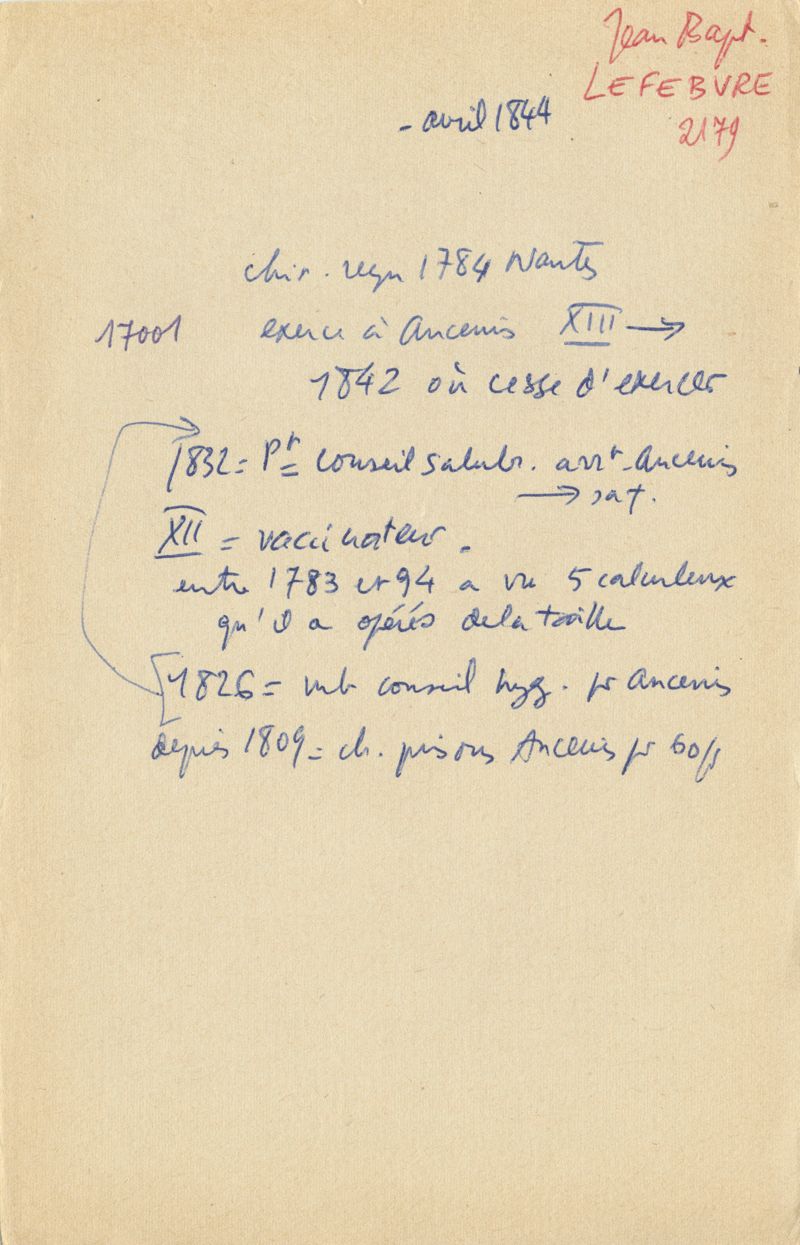 Jean Bapt.
LEFEBVRE
2179
- avril 1844
chir. reçu 1784 Nantes
17001 exerce à Ancenis XIII →
1842 où cesse d'exercer
1832 = Pt = conseil salubr. arrt - Ancenis
→ sa †.
XII = vaccinateur.
entre 1783 et 94 a vu 5 calculeux
qu'il a opérés de la taille
[1826 = mb conseil hyg. pr Ancenis
depuis 1809 = ch. prisons Ancenis pr 60 fr